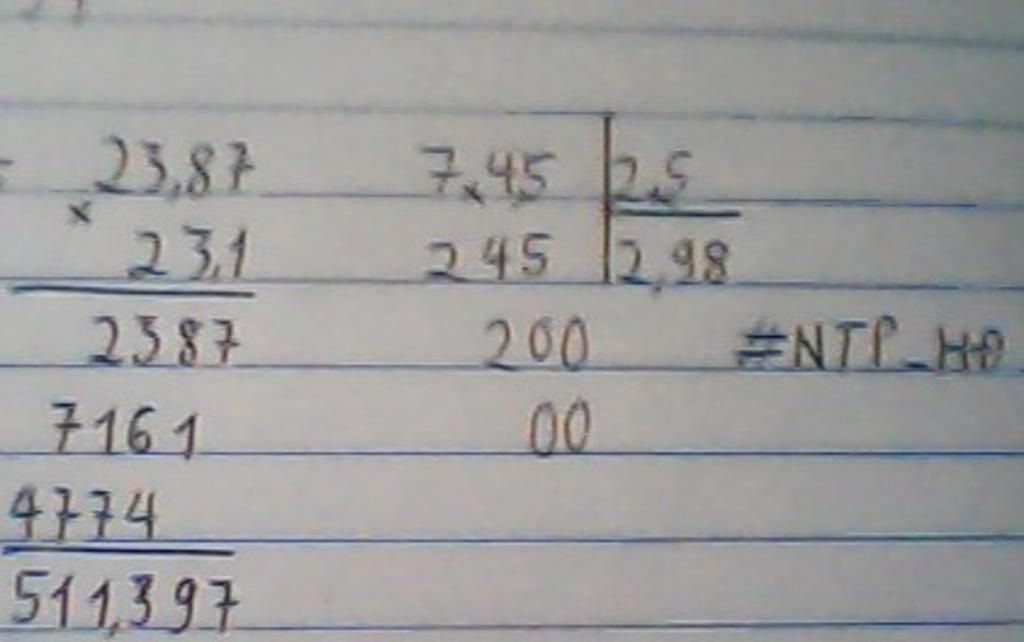 23,87 7,45 2,5
× 23,1 245 2,98
2387 200 #NTP_HP
7161 00
4774
511,397